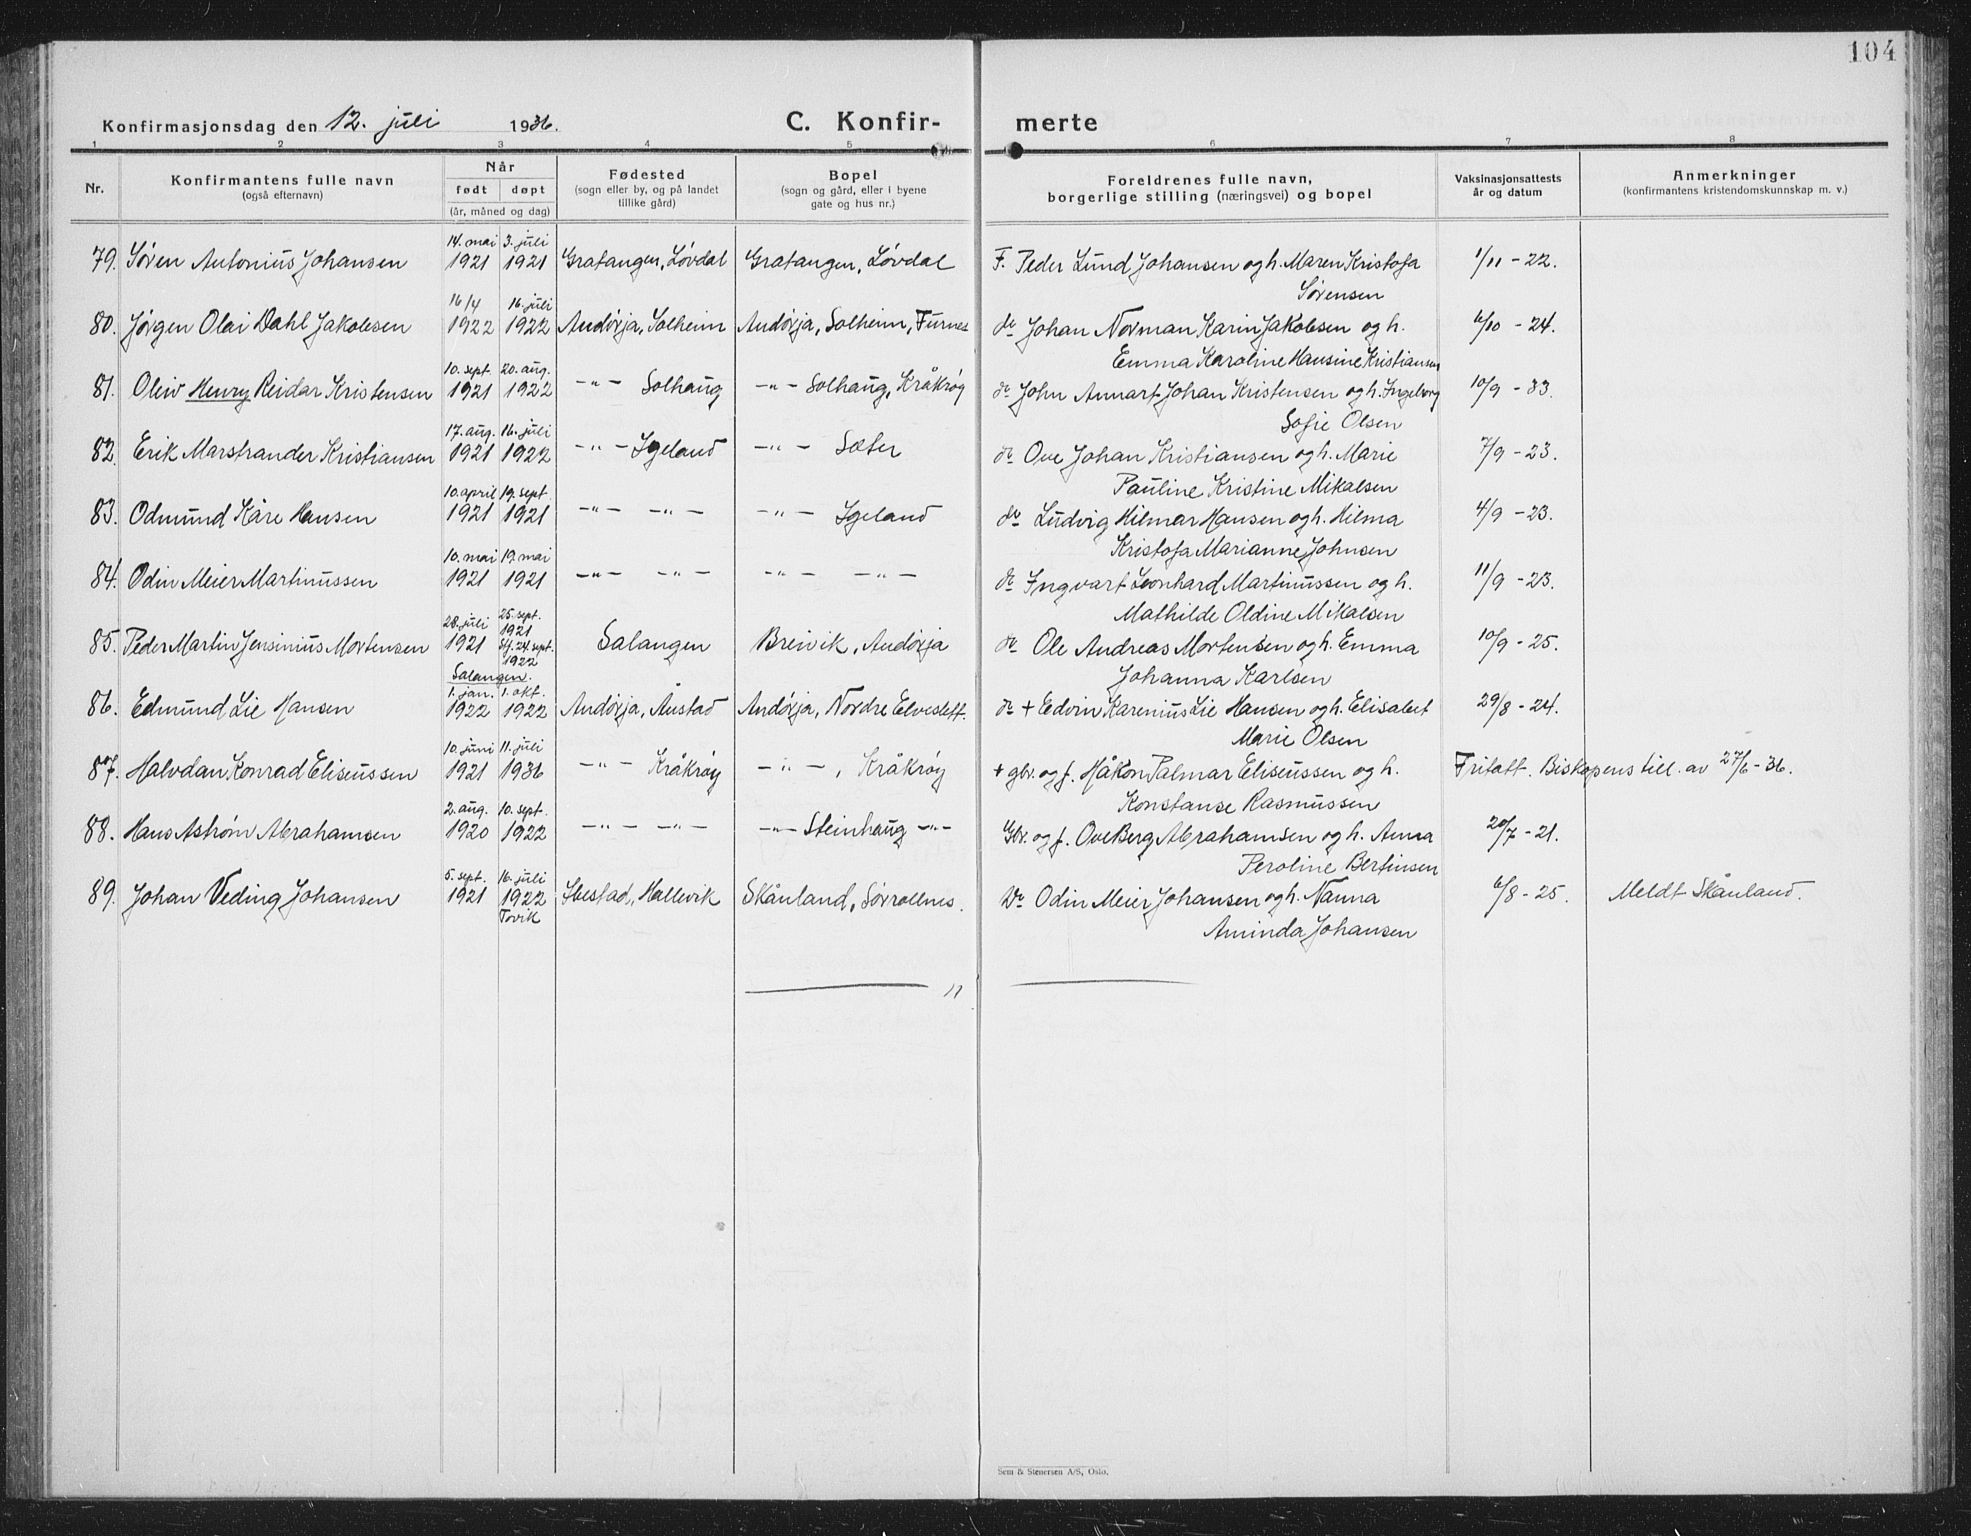 104
Konfirmasjonsdag den 12. juli 1936.
C. Konfir-
merte
1 2 3 4 5 6 7 8
Nr.
Konfirmantens fulle navn
(også efternavn)
Når
født døpt
(år, måned og dag)
Fødested
(sogn eller by, og på landet
tillike gård)
Bopel
(sogn og gård, eller i byene
gate og hus nr.)
Foreldrenes fulle navn,
borgerlige stilling (næringsvei) og bopel
Vaksinasjonsattests
år og datum
Anmerkninger
(konfirmantens kristendomskunnskap m. v.)
14. mai 3. juli
79. Søren Antonius Johansen 1921 1921 Gratangen, Løvdal Gratangen, Løvdal F. Peder Lund Johansen og h. Maren Kristofa 1/11 - 22.
Sørensen
16/4 16. juli
80. Jørgen Olai Dahl Jakobsen 1922 1922 Andørja, Solheim Andørja, Solheim, Furnes do Johan Norman Karin Jakobsen og h. 6/10 - 24.
Emma Karoline Hansine Kristiansen
10. sept. 20. aug.
81. Oliv Henry Reidar Kristensen 1921 1922 -"- Solhaug -"- Solhaug, Kråkrøy do John Annart Johan Kristensen og h. Ingeborg 10/9 - 33.
Sofie Olsen
17. aug. 16. juli
82. Erik Marstrander Kristiansen 1921 1922 -"- Igeland -"- Sæter do Ove Johan Kristiansen og h. Marie 7/9 - 23.
Pauline Kristine Mikalsen
10. april 19. sept.
83. Odmund Kåre Hansen 1921 1921 -"- -"- -"- Igeland do Ludvig Hilmar Hansen og h. Hilma 4/9 - 23.
Kristofa Marianne Johnsen
10. mai 19. mai
84. Odin Meier Martinussen 1921 1921 -"- -"- -"- -"- do Ingvart Leonhard Martinussen og h. 11/9 - 23.
Mathilde Oldine Mikalsen
28. juli 25. sept.
1921
85. Peder Martin Jensinius Mortensen 1921 Stf. 24. sept. Salangen Breivik, Andørja do Ole Andreas Mortensen og h. Emma 10/9 - 25.
1922
Salangen.
Johanna Karlsen
1. jan. 1. okt.
86. Edmund Lie Hansen 1922 1922 Andørja, Ånstad Andørja, Nordre Elveslett. do + Edvin Karenius Lie Hansen og h. Elisabet 29/8 - 24.
Marie Olsen
10. juni 11. juli
87. Halvdan Konrad Eliseussen 1921 1936 -"- Kråkrøy -"-, Kråkrøy + gbr. og f. Håkon Palmar Eliseussen og h. Fritatt. Biskopens till. av 27/6 - 36.
Konstanse Rasmussen
2. aug. 10. sept.
88. Hans Astrøm Abrahamsen 1920 1922 -"- -"- -"- Steinhaug -"- Gbr. og f. Ove Berg Abrahamsen og h. Anna 20/7 - 21.
Peroline Bertinsen
5. sept. 16. juli
89. Johan Veding Johansen 1921 1922 Ibestad, Hallevik Skånland, Sørrollnes. Do Odin Meier Johansen og h. Nanna 6/8 - 25. Meldt Skånland.
Tovik
Aminda Johansen
Sem & Stenersen A/S, Oslo.